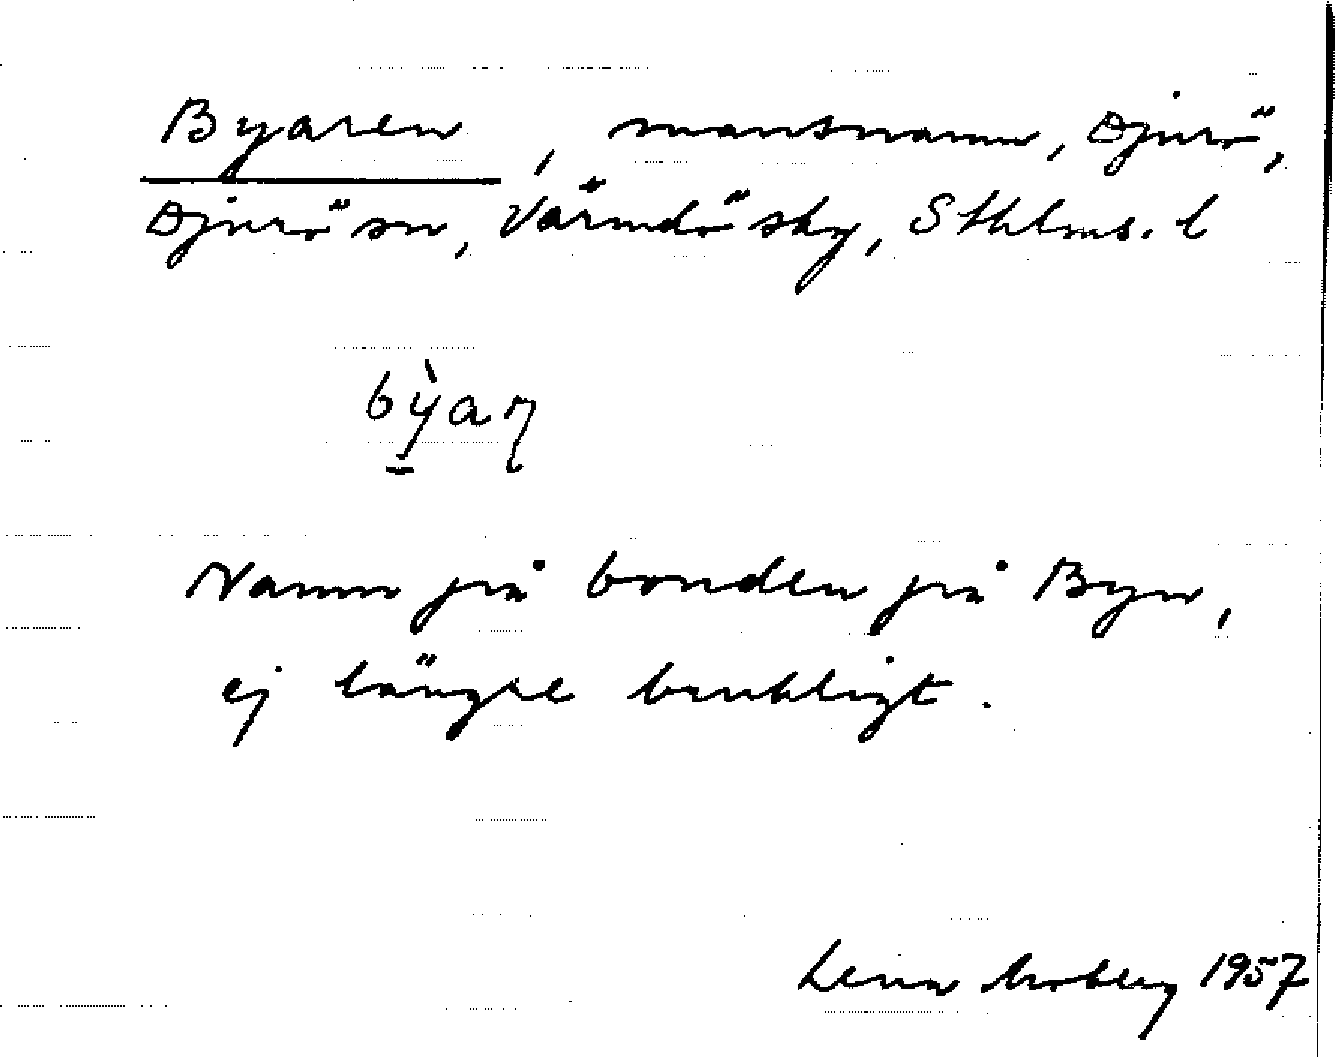 Byaren, mansnamn, Djurö,
Djurö sn, Värmdö skg, Sthlms. l
bỳ̱aɳ
Namn på bonden på Byn,
ej längre brukligt.
Lena Moberg 1957